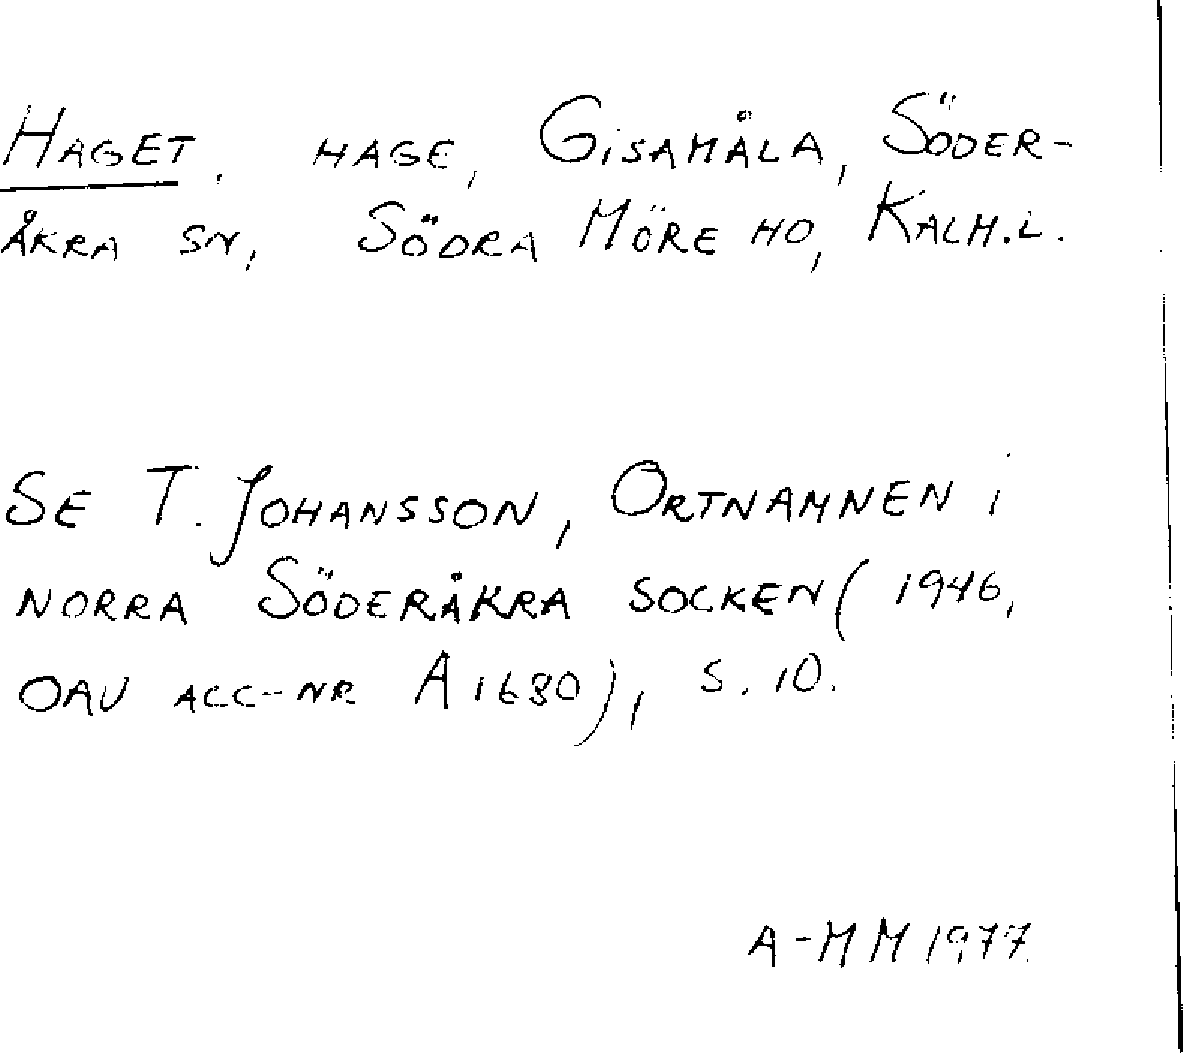 HAGET, HAGE, GISAMÅLA, SÖDER-
ÅKRA SN, SÖDRA MÖRE HD, KALM.L.
SE T. JOHANSSON, ORTNAMNEN I
NORRA SÖDERÅKRA SOCKEN (1946,
OAU ACC-NR A1680), S. 10.
A-MM 1977